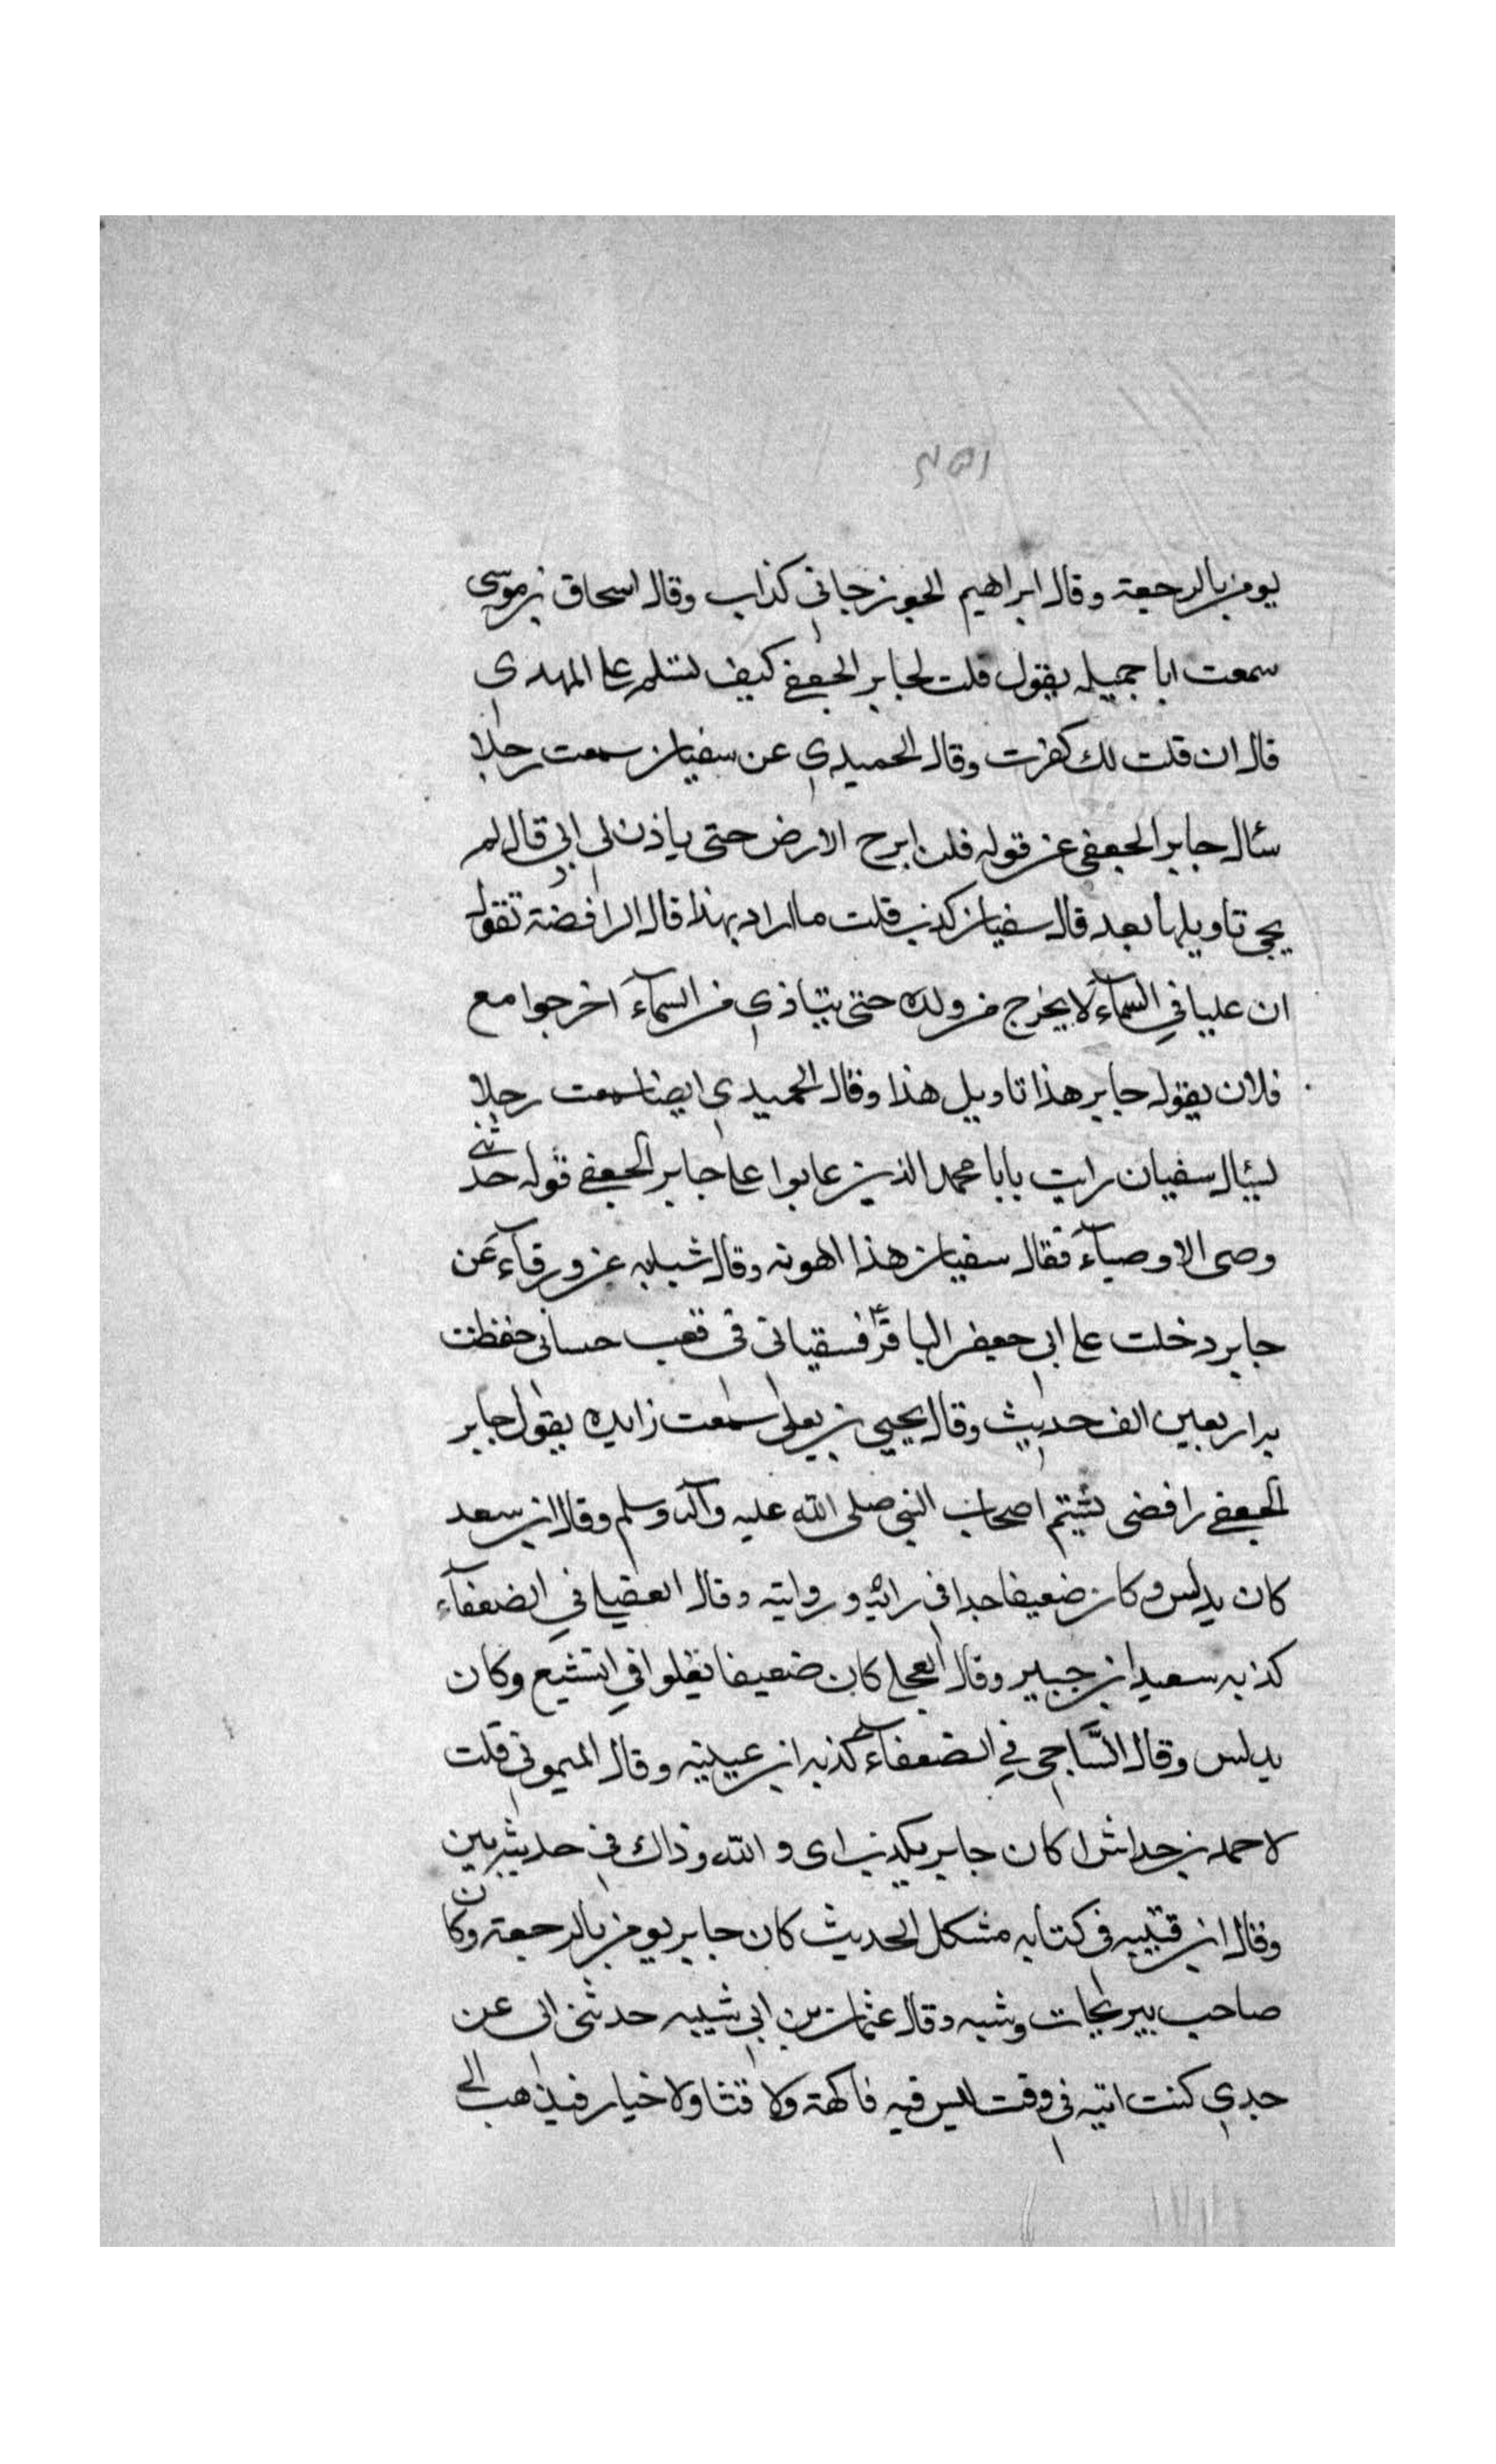 يومن بالرجعة وقال ابراهيم الجوزجاني كذاب وقال اسحاق بن موسى
سمعت ابا جميله يقول قلت لجابر الجعفي كيف تسلم على المهدي
قال ان قلت لك كفرت وقال الحميدي عن سفيان سمعت رجلا
سئال جابر الجعفي عن قوله فلن ابرح الارض حتى ياذن لي ابي قال لم
يجي تاويلها بعد قال سفيان كذب قلت ما اراد بهذا قال الرافضة تقول
ان عليا في السمآء لا يخرج من ولده حتى ينادي من السمآء اخرجوا مع
فلان يقول جابر هذا تاويل هذا وقال الحميدي ايضا سمعت رجلا
يسئال سفيان رايت يابا محمد الذين عابوا على جابر الجعفي قوله حدثني
وصى الاوصيآء فقال سفيان هذا اهونه وقال شبابه عن ورقآء عن
جابر دخلت على ابي جعفر الباقر فسقياني في قعب حسائي حفظت
به اربعين الف حديث وقال يحيى بن يعلى سمعت زايده يقول جابر
الجعفي رافضي يشتم اصحاب النبي صلى الله عليه وآله وسلم وقال ابن سعد
كان يدلس وكان ضعيفا جدا في رائه وروايته وقال العقيلي في الضعفآء
كذبه سعيد ابن جبير وقال العجلي كان ضعيفا يغلوا في التشيع وكان
يدلس وقال السَّاجي في الضعفآء كذبه ابن عيينه وقال الميموني قلت
لاحمد بن خداش اكان جابر يكذب اى و الله وذاك في حديثه بين
وقال ابن قتيبه في كتابه مشكل الحديث كان جابر يومن بالرجعة وكان
صاحب نيرنجات وشبه وقال عثمان بن ابي شيبه حدثني ابى عن
جدي كنت اتيه في وقت ليس فيه فاكهة ولا قثا ولا خيار فيذهب الى